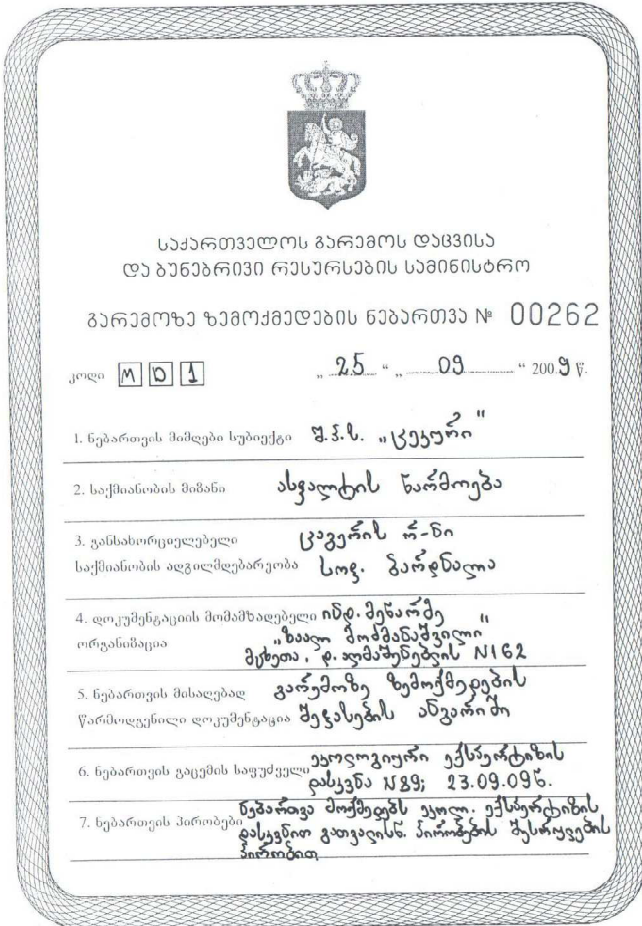 საქართველოს გარემოს დაცვისა
და ბუნებრივი რესურსების სამინისტრო
გარემოზე ზემოქმედების ნებართვა № 00262
კოდი M D 1 „ 25 “ „ 09 “ 2009 წ.
1. ნებართვის მიმღები სუბიექტი შ.პ.ს. „ცეკური"
2. საქმიანობის მიზანი ასფალტის წარმოება
3. განსახორციელებელი ცაგერის რ-ნი
საქმიანობის ადგილმდებარეობა სოფ. ბარდნალა
4. დოკუმენტაციის მომამზადებელი ინდ. მეწარმე
ორგანიზაცია „ზაალ მომ‌ანაშვილი"
მცხეთა. დ. აღმაშენებლის N162
5. ნებართვის მისაღებად გარემოზე ზემოქმედების
წარმოდგენილი დოკუმენტაცია შეფასების ანგარიში
6. ნებართვის გაცემის საფუძველი ეკოლოგიური ექსპერტიზის
დასკვნა N89; 23.09.09წ.
7. ნებართვის პირობები ნებართვა მოქმედებს ეკოლ. ექსპერტიზის
დასკვნით გათვალისწ. პირობების შესრულების
პირობით